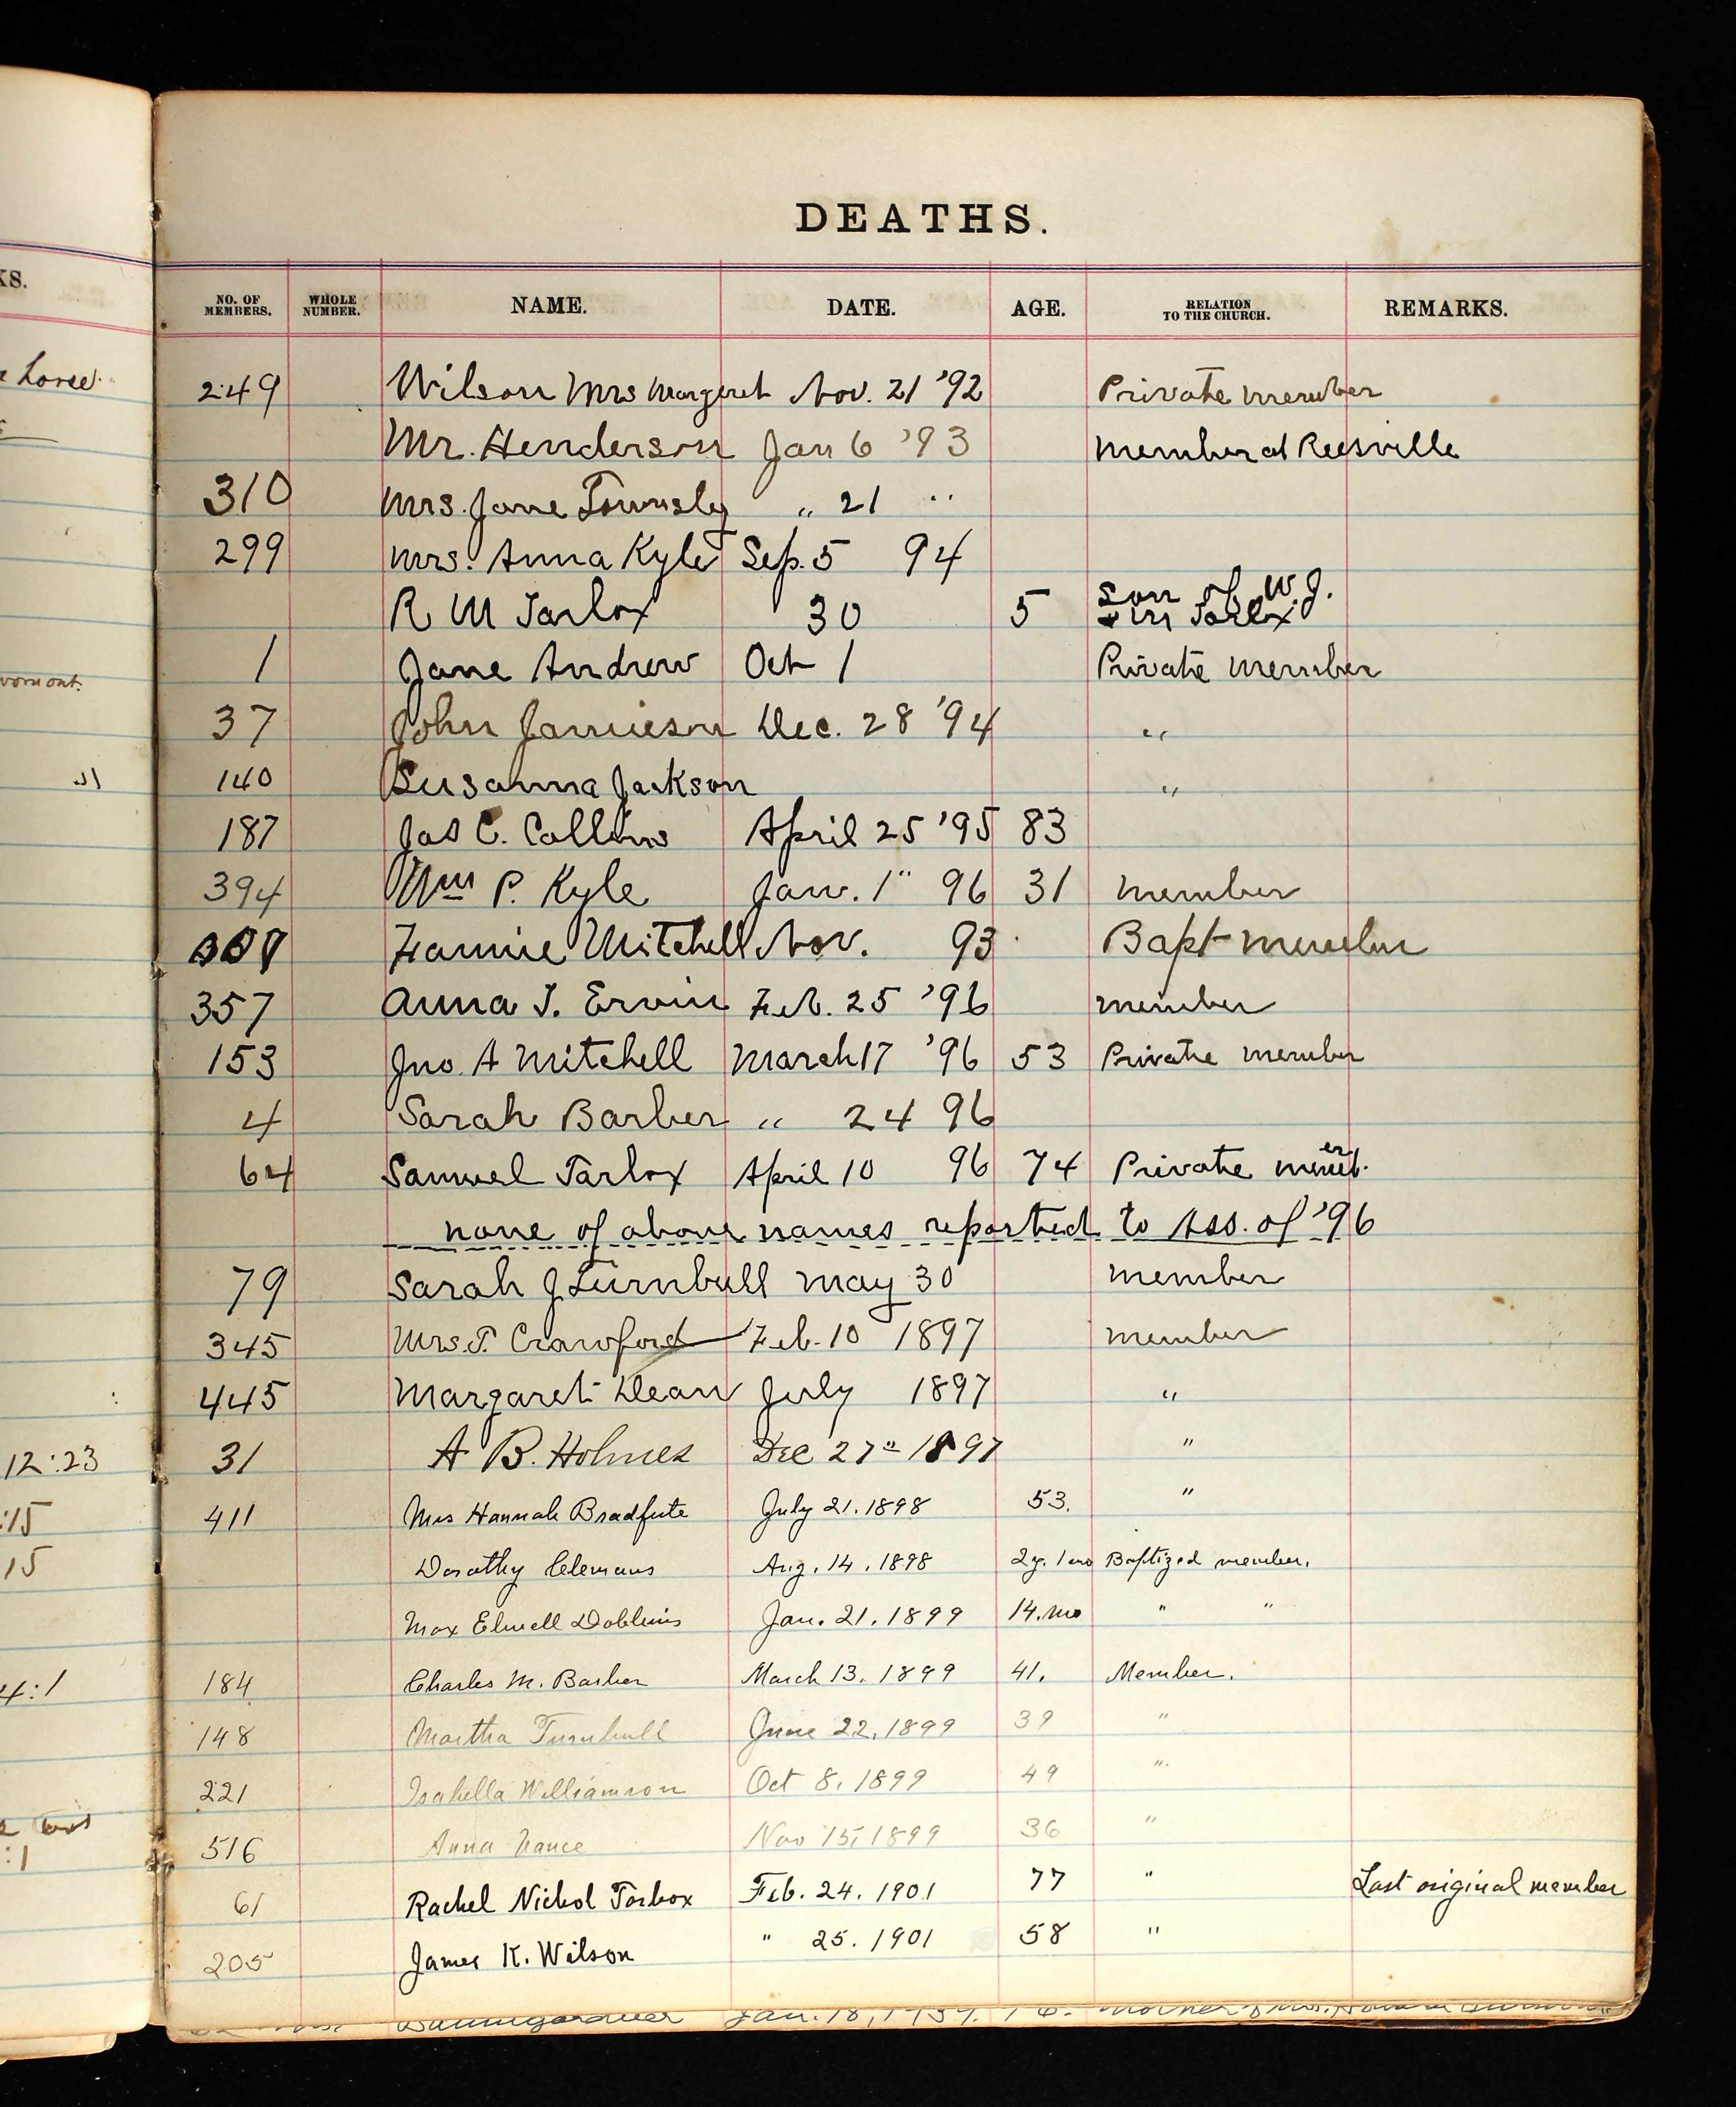 DEATHS.
NO. OF MEMBERS. WHOLE NUMBER. NAME. DATE. AGE. RELATION TO THE CHURCH. REMARKS.
249 Wilson Mrs Margaret Nov. 21 '92 Private member
Mr. Henderson Jan 6 '93 Member at Reesville
310 Mrs. Jane Townsley " 21 "
299 Mrs. Anna Kyle Sep. 5 94
R M Tarbox 30 5 son of W. J. + M Tarbox
1 Jane Andrew Oct 1 Private member
37 John Jamieson Dec. 28 '94 "
140 Susanna Jackson "
187 Jas C. Collins April 25 '95 83
394 Wm P. Kyle Jan. 1" 96 31 member
Fannie Mitchell Nov. 93 Bapt member
357 Anna J. Ervin Feb. 25 '96 member
153 Jno. A Mitchell March 17 '96 53 Private member
4 Sarah Barber " 24 96
64 Samuel Tarbox April 10 96 74 Private memb.er
none of above names reported to Ass. of '96
79 Sarah J Turnbull May 30 member
345 Mrs. T. Crawford Feb. 10 1897 member
445 Margaret Dean July 1897 "
31 A B. Holmes Dec 27" 1897 "
411 Mrs Hannah Bradfute July 21. 1898 53. "
Dorothy Clemans Aug. 14. 1898 2y. 1mo Baptized member.
Max Elwell Dobbins Jan. 21. 1899 14. mo " "
184 Charles M. Barber March 13. 1899 41. Member.
148 Martha Turnbull June 22, 1899 39 "
221 Isabella Williamson Oct 8, 1899 49 "
516 Anna Nance Nov 15, 1899 36 "
61 Rachel Nichol Tarbox Feb. 24. 1901 77 " Last original member
205 James K. Wilson " 25. 1901 58 "
Baumgardner Jan. 18, 
KS.
12:23
:15
15
4:1
:1